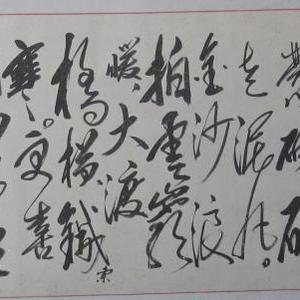 蒙磅礴
走泥丸。
金沙浪
拍雲崖
暖，大渡
橋橫鐵索
寒。更喜